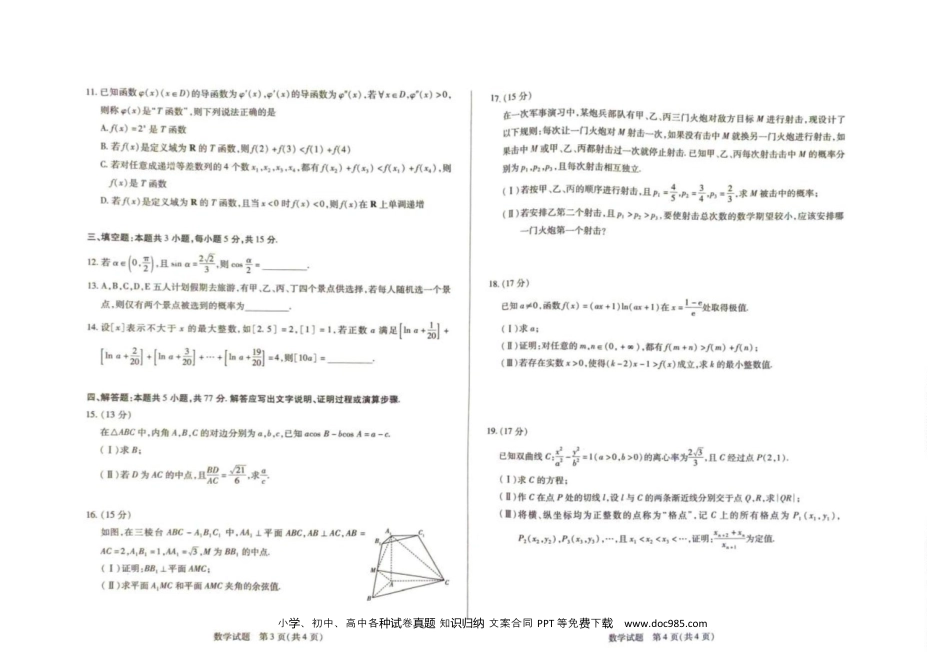 11. 已知函数φ(x)(x∈D)的导函数为φ′(x),φ′(x)的导函数为φ″(x),若∀x∈D,φ″(x)>0,
则称φ(x)是“T函数”,则下列说法正确的是
A. f(x)=2ˣ是T函数
B. 若f(x)是定义域为R的T函数,则f(2)+f(3)<f(1)+f(4)
C. 若对任意成递增等差数列的4个数x₁,x₂,x₃,x₄,都有f(x₂)+f(x₃)<f(x₁)+f(x₄),则
f(x)是T函数
D. 若f(x)是定义域为R的T函数,且当x<0时f(x)<0,则f(x)在R上单调递增
三、填空题:本题共3小题,每小题5分,共15分.
12. 若α∈(0,π/2),且sin α=2√2/3,则cos α/2=________.
13. A,B,C,D,E五人计划假期去旅游,有甲、乙、丙、丁四个景点供选择,若每人随机选一个景
点,则仅有两个景点被选到的概率为________.
14. 设[x]表示不大于x的最大整数,如[2.5]=2,[1]=1,若正数a满足[ln a+1/20]+
[ln a+2/20]+[ln a+3/20]+⋯+[ln a+19/20]=4,则[10a]=________.
四、解答题:本题共5小题,共77分. 解答应写出文字说明、证明过程或演算步骤.
15. (13分)
在△ABC中,内角A,B,C的对边分别为a,b,c,已知acos B-bcos A=a-c.
(Ⅰ)求B;
(Ⅱ)若D为AC的中点,且BD/AC=√21/6,求a/c.
16. (15分)
如图,在三棱台ABC-A₁B₁C₁中,AA₁⊥平面ABC,AB⊥AC,AB=
AC=2,A₁B₁=1,AA₁=√3,M为BB₁的中点.
(Ⅰ)证明:BB₁⊥平面AMC;
(Ⅱ)求平面A₁MC和平面AMC夹角的余弦值.
A₁
C₁
B₁
M
A
C
B
数学试题 第3页(共4页)
17. (15分)
在一次军事演习中,某炮兵部队有甲、乙、丙三门火炮对敌方目标M进行射击,现设计了
以下规则:每次让一门火炮对M射击一次,如果没有击中M就换另一门火炮进行射击,如
果击中M或甲、乙、丙都射击过一次就停止射击.已知甲、乙、丙每次射击击中M的概率分
别为p₁,p₂,p₃,且每次射击相互独立.
(Ⅰ)若按甲、乙、丙的顺序进行射击,且p₁=4/5,p₂=3/4,p₃=2/3,求M被击中的概率;
(Ⅱ)若安排乙第二个射击,且p₁>p₂>p₃,要使射击总次数的数学期望较小,应该安排哪
一门火炮第一个射击?
18. (17分)
已知a≠0,函数f(x)=(ax+1)ln(ax+1)在x=(1-e)/e处取得极值.
(Ⅰ)求a;
(Ⅱ)证明:对任意的m,n∈(0,+∞),都有f(m+n)>f(m)+f(n);
(Ⅲ)若存在实数x>0,使得(k-2)x-1>f(x)成立,求k的最小整数值.
19. (17分)
已知双曲线C:x²/a²-y²/b²=1(a>0,b>0)的离心率为2√3/3,且C经过点P(2,1).
(Ⅰ)求C的方程;
(Ⅱ)作C在点P处的切线l,设l与C的两条渐近线分别交于点Q,R,求|QR|;
(Ⅲ)将横、纵坐标均为正整数的点称为“格点”,记C上的所有格点为P₁(x₁,y₁),
P₂(x₂,y₂),P₃(x₃,y₃),⋯,且x₁<x₂<x₃<⋯,证明:(xₙ₊₂+xₙ)/xₙ₊₁为定值.
数学试题 第4页(共4页)
小学、初中、高中各种试卷真题 知识归纳 文案合同 PPT等免费下载 www.doc985.com